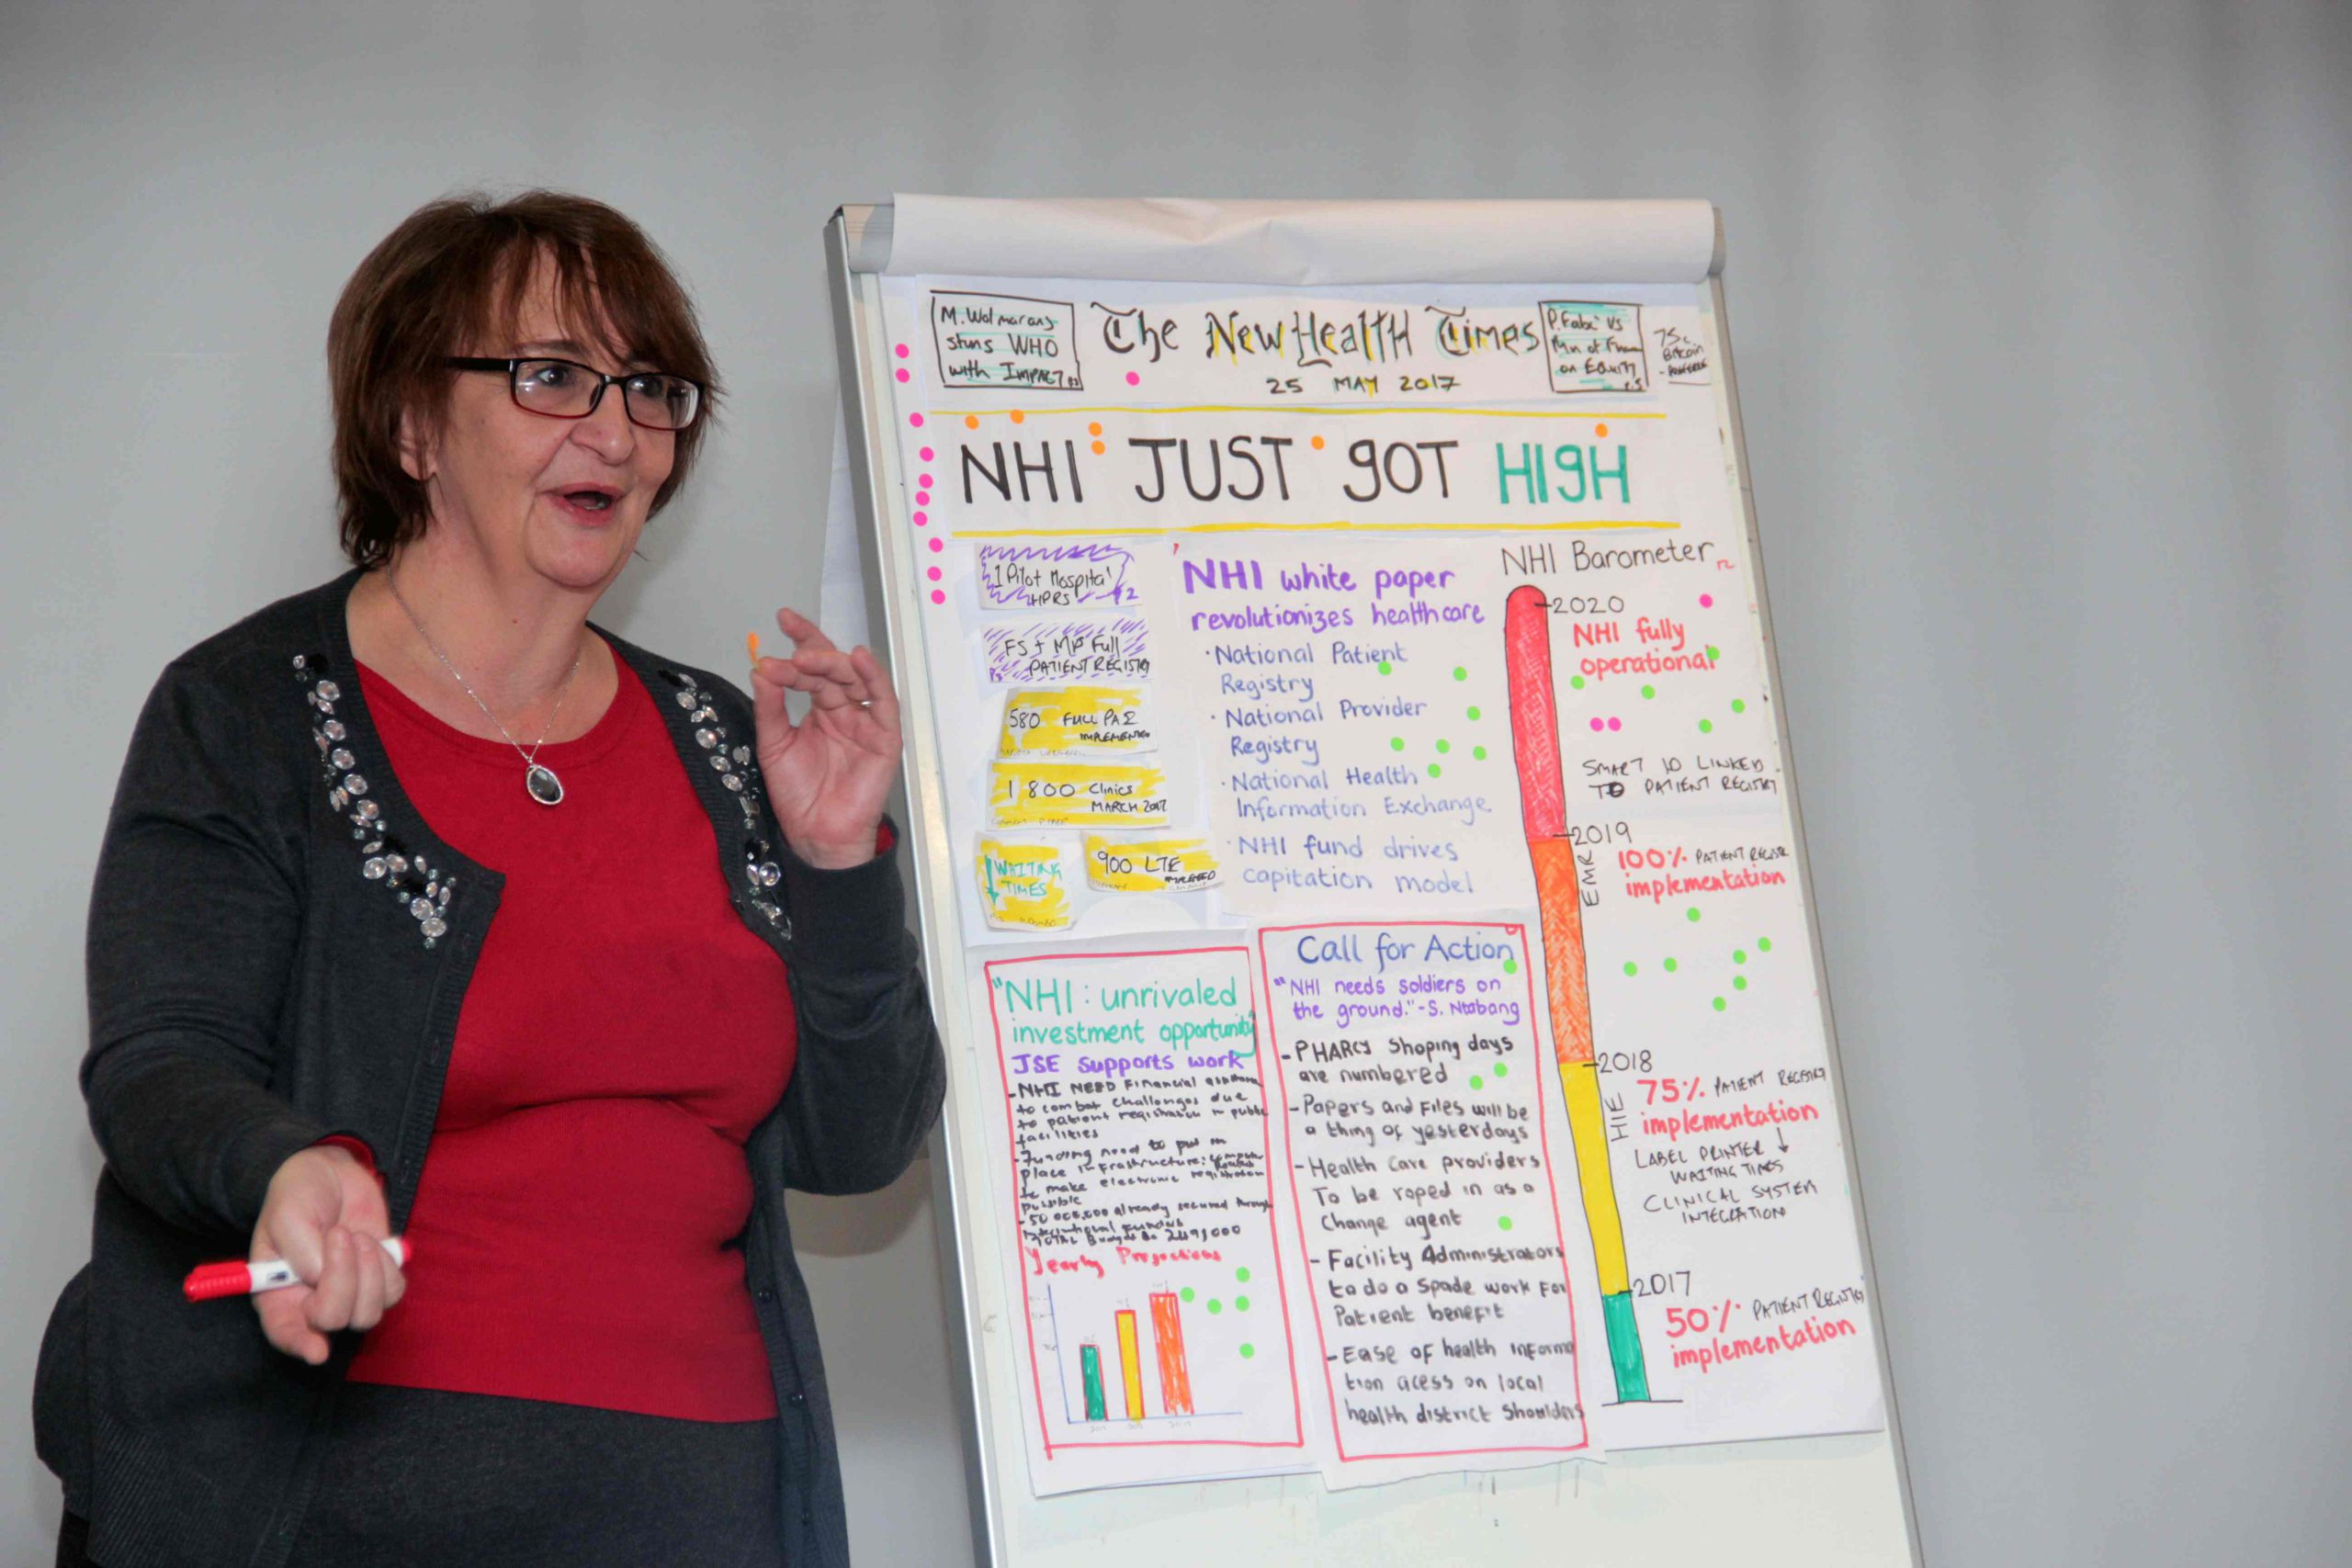 M. Wolmarans
stuns WHO
with IMPACT
The New Health Times
25 MAY 2017
P. Fabe' VS
Min of
on Equity
75c
Bitcoin
NHI JUST GOT HIGH
1 Pilot Hospital
HPRS P2
FS + MP Full
PATIENT REGISTRY
580 FULL
IMPLEMENTED
1 800 Clinics
MARCH 2017
WAITING
TIMES
900 LTE
NHI white paper
revolutionizes healthcare
· National Patient
Registry
· National Provider
Registry
· National Health
Information Exchange
· NHI fund drives
capitation model
"NHI : unrivaled
investment opportunity
JSE supports work
- NHI NEED Financial
to combat challenges due
to patient registration in public
facilities
- Funding need to put in
place infrastructure: computer
to make electronic registration
possible
already secured through
Yearly Projections
Call for Action
"NHI needs soldiers on
the ground." - S. Ntabang
- PHARCY Shoping days
are numbered
- Papers and Files will be
a thing of yesterdays
- Health Care providers
To be roped in as a
Change agent
- Facility Administrators
to do a Spade work For
Patient benefit
- Ease of health informa
tion acess on local
health district Shoulders
NHI Barometer
2020
NHI fully
operational
SMART ID LINKED
TO PATIENT REGISTRY
2019
EMR
100% PATIENT REGISTR
implementation
2018
HIE
75% PATIENT REGISTRY
implementation
LABEL PRINTER
WAITING TIMES
CLINICAL SYSTEM
INTEGRATION
2017
50% PATIENT REGISTRY
implementation